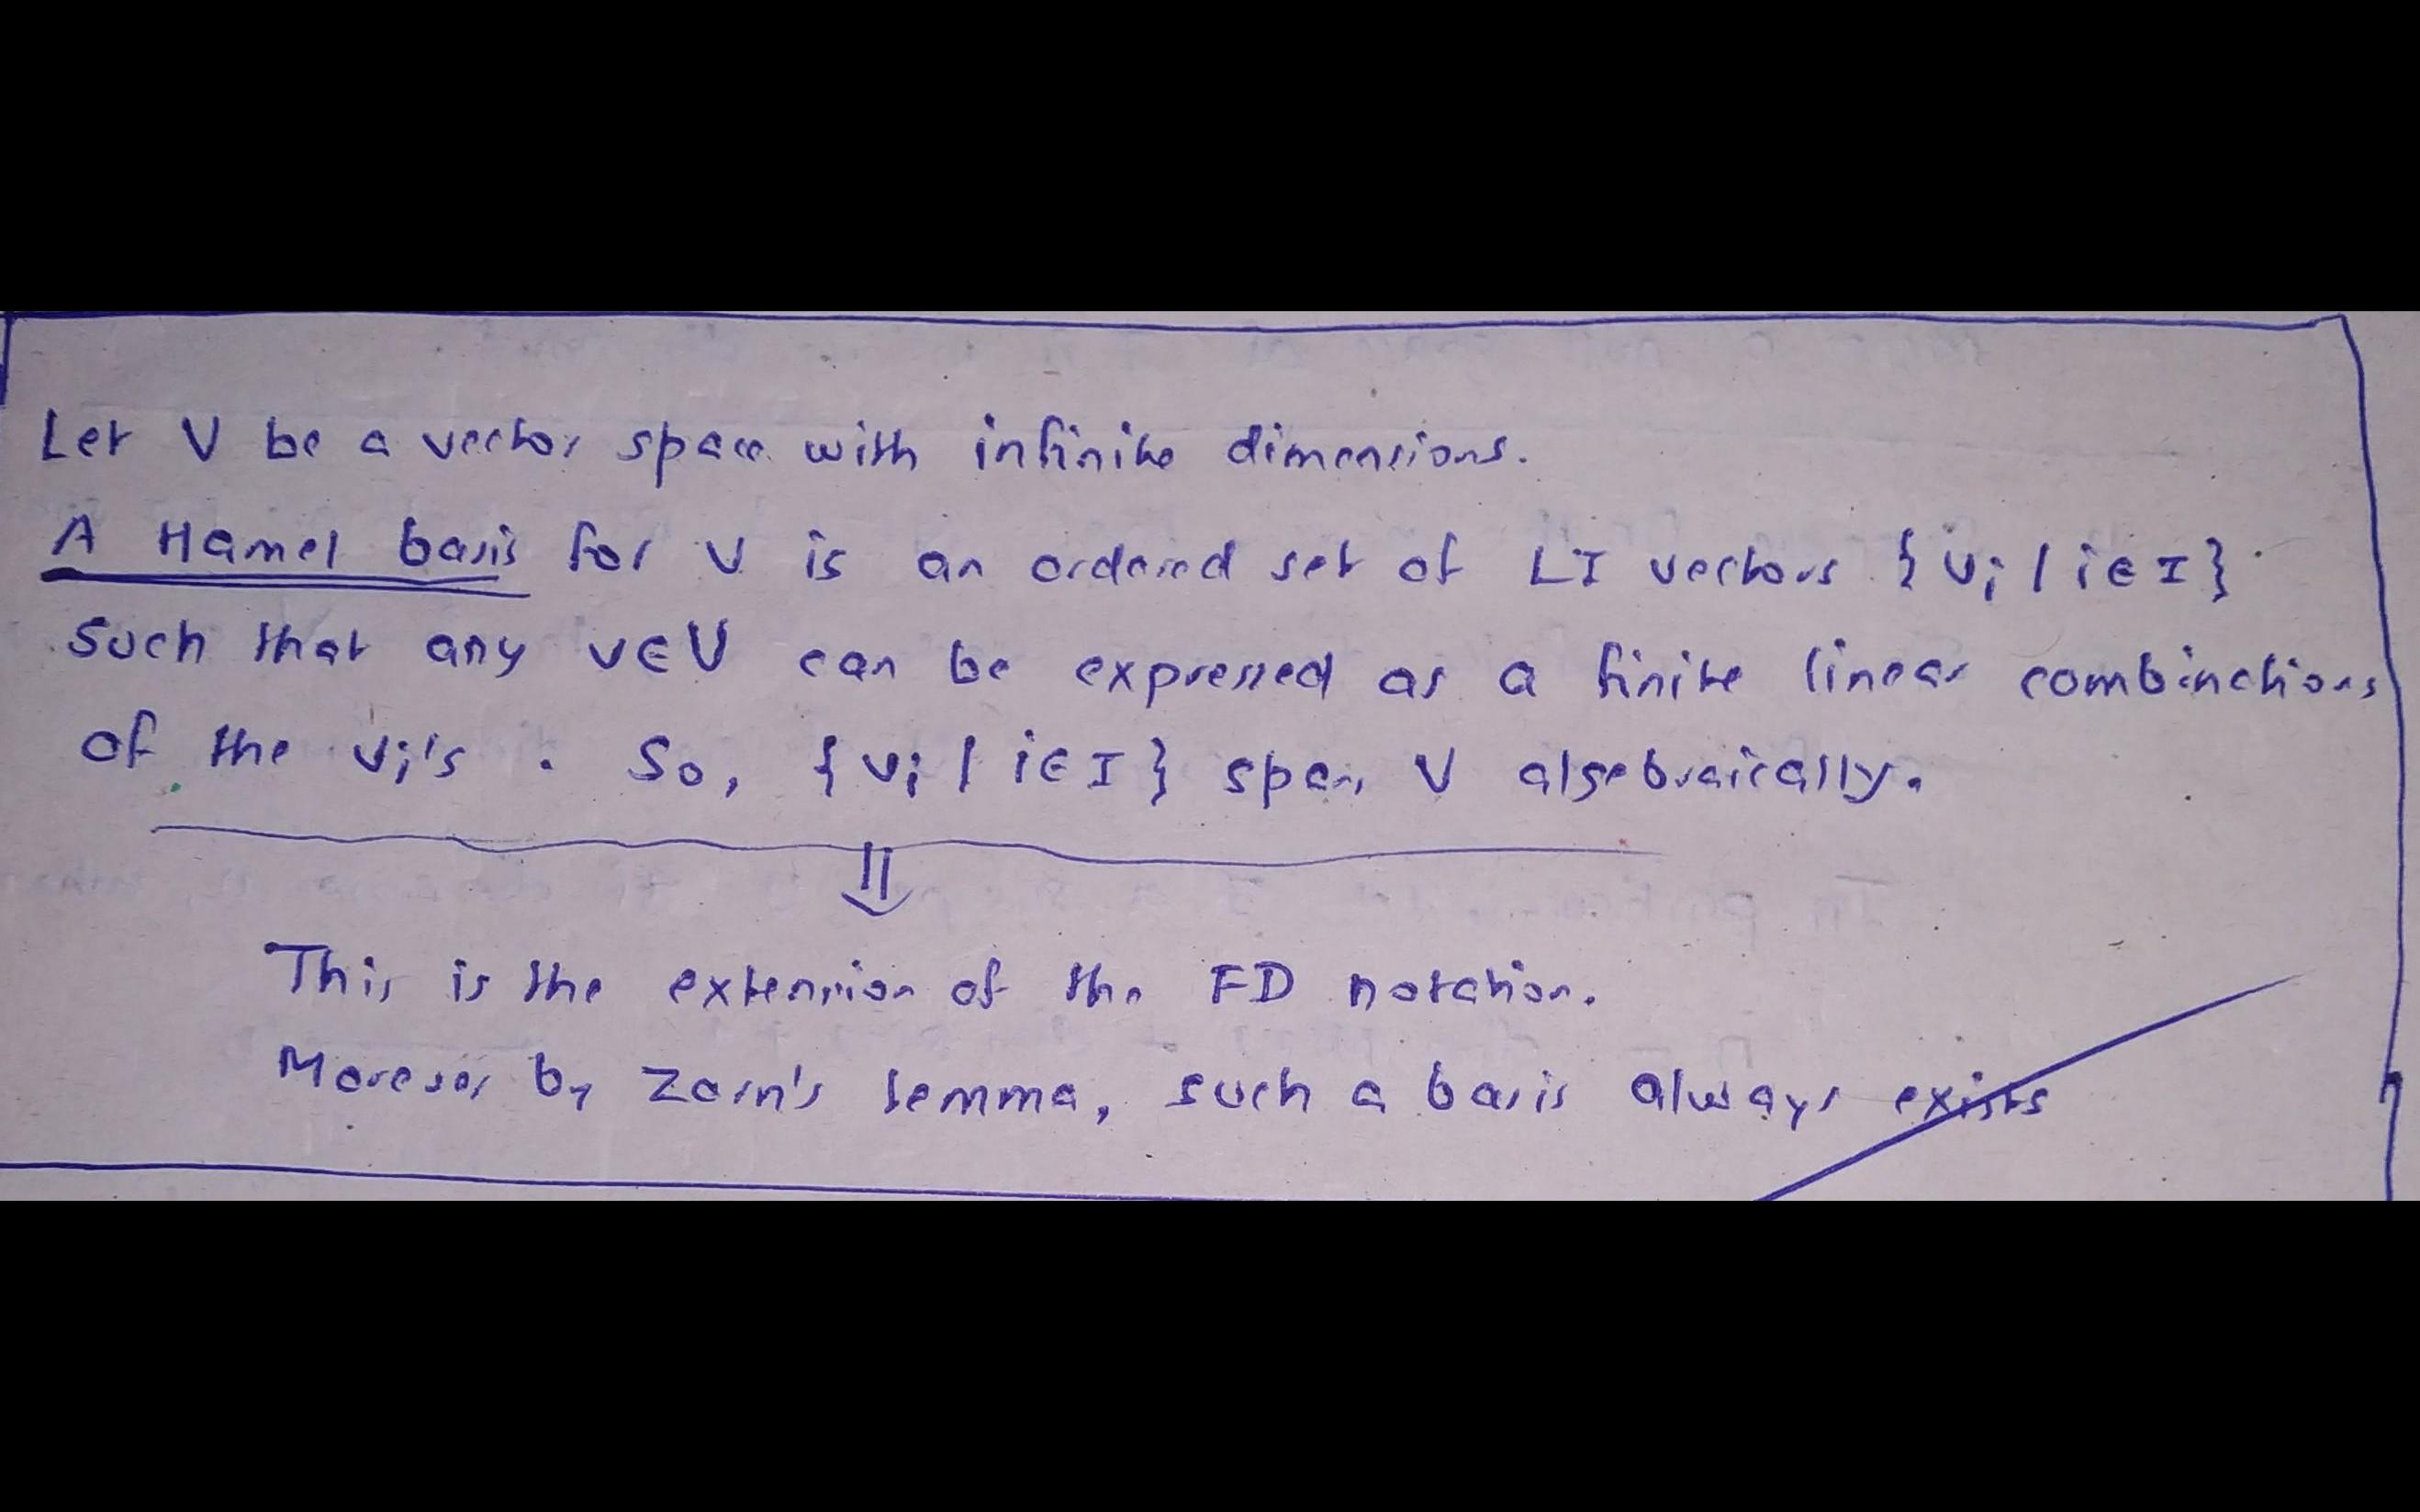 Let V be a vector space with infinite dimensions.
A Hamel basis for V is an ordered set of LI vectors {vi | i∈I}
such that any v∈V can be expressed as a finite linear combinations
of the vi's. So, {vi | i∈I} span V algebraically.
⇓
This is the extension of the FD notation.
Moreover by Zorn's lemma, such a basis always exists